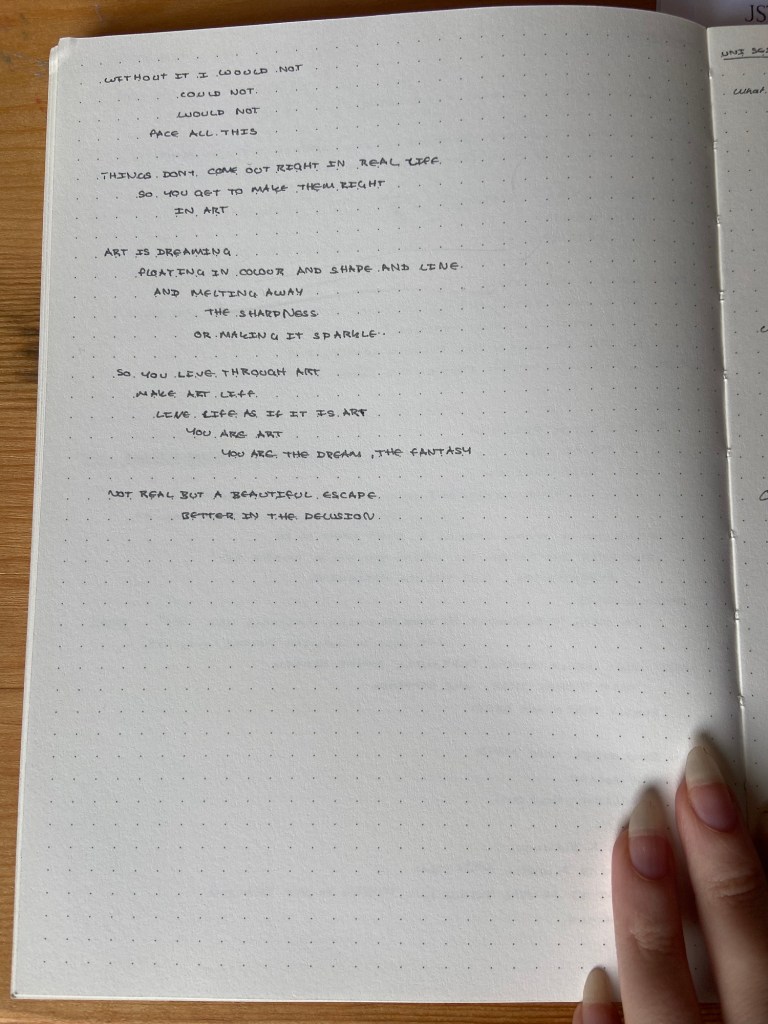 WITHOUT IT I WOULD NOT
COULD NOT.
WOULD NOT
FACE ALL THIS
THINGS DON'T COME OUT RIGHT IN REAL LIFE.
SO YOU GET TO MAKE THEM RIGHT
IN ART
ART IS DREAMING
FLOATING IN COLOUR AND SHAPE AND LINE.
AND MELTING AWAY
THE SHARPNESS
OR MAKING IT SPARKLE.
SO YOU LIVE THROUGH ART
MAKE ART LIFE.
LIVE LIFE AS IF IT IS ART
YOU ARE ART
YOU ARE THE DREAM, THE FANTASY
NOT REAL BUT A BEAUTIFUL ESCAPE.
BETTER IN THE DELUSION.
JS
UNI
What